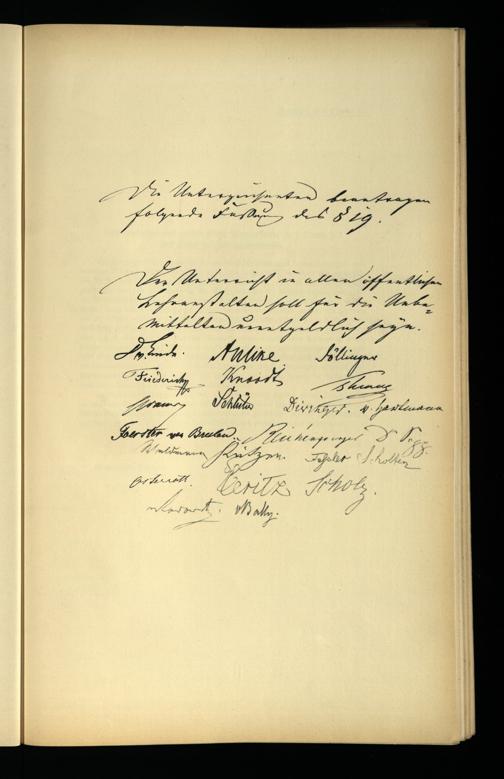 Die Unterzeichneten beantragen
folgende Fassung des § 19.
Der Unterricht in allen öffentlichen
Lehranstalten soll für die Unbe=
mittelten unentgeldlich seyn.
v. Linde. Aulike Döllinger
Friederich Knoodt
Schlüter Dieringer. v. Hartmann
Foerster von Breslau. Reichensperger
Kützen. Scholten
Osterrath. Neritz Scholz.
v Bally.